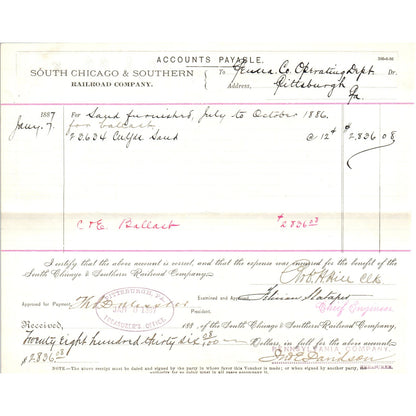 ACCOUNTS PAYABLE.
SOUTH CHICAGO & SOUTHERN
RAILROAD COMPANY.
To Penna. Co. Operating Dept Dr.
Address, Pittsburgh
Pa.
1887
Jany. 7.
For Sand furnished, July to October 1886.
for ballast
23634 Cu Yds Sand @ 12¢ $2,836 08
C & E Ballast $2836
I certify that the above account is correct, and that the expense was incurred for the benefit of the
South Chicago & Southern Railroad Company.
Clk
Examined and Approved,
Approved for Payment,
Chief Engineer
PITTSBURGH, PA.
1887
Received, 188 , of the South Chicago & Southern Railroad Company,
Twenty Eight hundred thirty six 08/100 Dollars, in full for the above account.
PENNSYLVANIA COMPANY
$2836.08
Jno E Davidson
NOTE.—Above receipt must be dated and signed by the party in whose favor this Voucher is made; or, if signed by another party, authority for so doing must in all cases accompany it.
TREASURER.